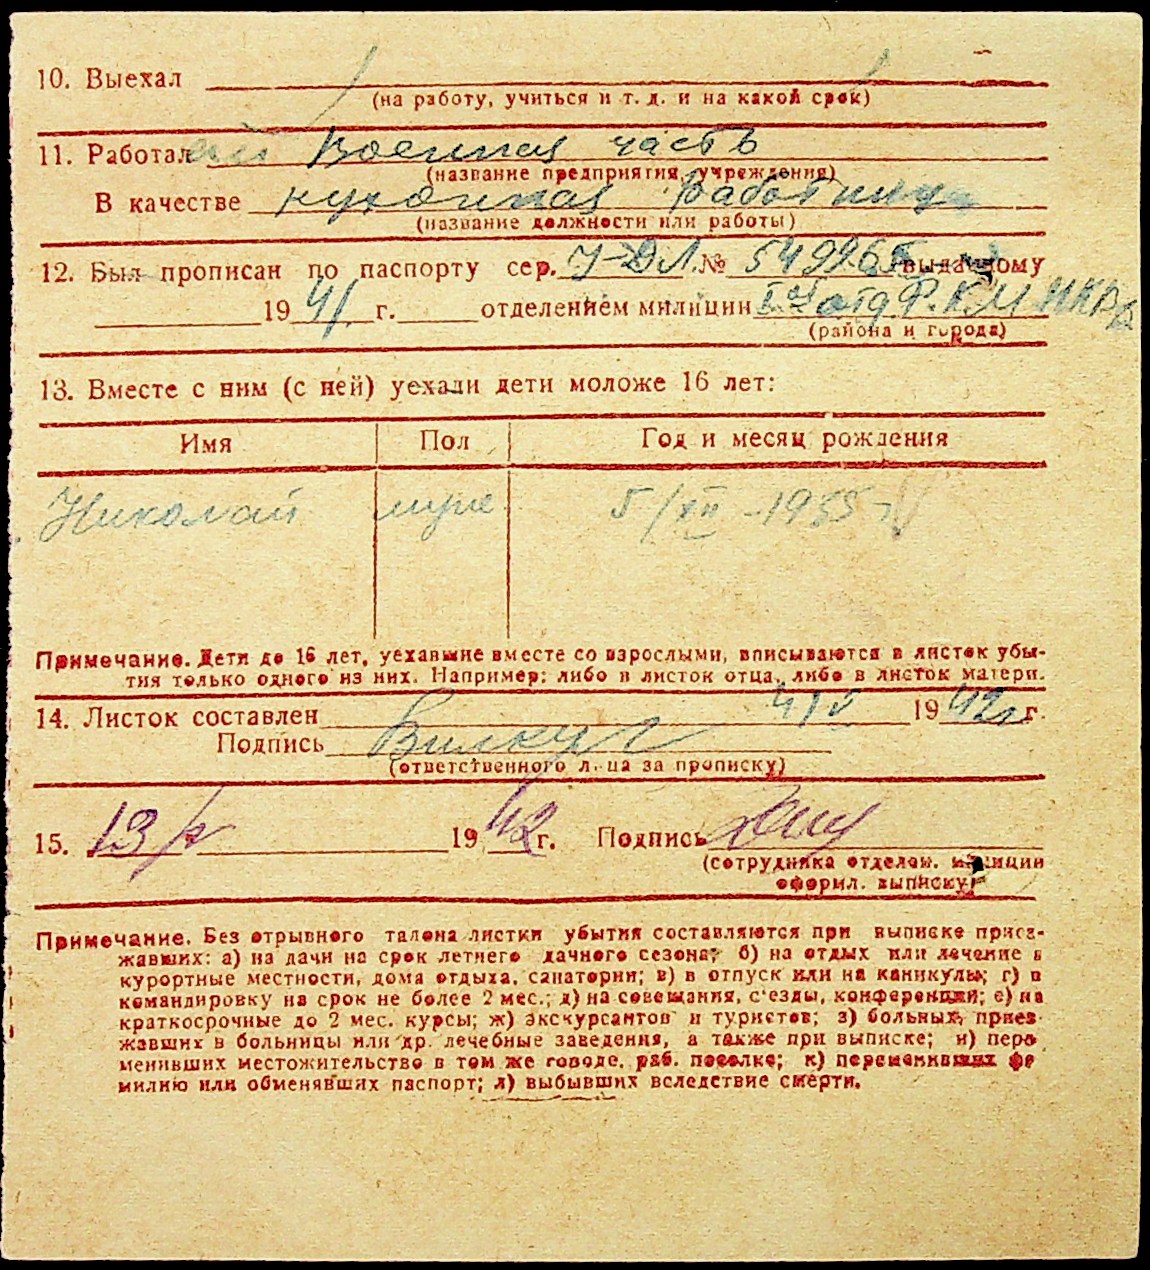 10. Выехал
(на работу, учиться и т. д. и на какой срок)
11. Работал Военная часть
(название предприятия, учреждения)
В качестве кухонная работница
(название должности или работы)
12. Был прописан по паспорту сер. № 549965 выданному
1941 г. отделением милиции отд Р.К.М НКВД
(района и города)
13. Вместе с ним (с ней) уехали дети моложе 16 лет:
Имя Пол Год и месяц рождения
Николай муж 5/XII-1935
Примечание. Дети до 16 лет, уехавшие вместе со взрослыми, вписываются в листок убы-
тия только одного из них. Например: либо в листок отца, либо в листок матери.
14. Листок составлен 4/V 1942 г.
Подпись
(ответственного лица за прописку)
15. 13/V 1942 г. Подпись
(сотрудника отделен. милиции
оформил. выписку)
Примечание. Без отрывного талона листки убытия составляются при выписке приез-
жавших: а) на дачи на срок летнего дачного сезона; б) на отдых или лечение в
курортные местности, дома отдыха, санатории; в) в отпуск или на каникулы; г) в
командировку на срок не более 2 мес.; д) на совещания, с'езды, конференции; е) на
краткосрочные до 2 мес. курсы; ж) экскурсантов и туристов; з) больных, приез-
жавших в больницы или др. лечебные заведения, а также при выписке; и) пере
менивших местожительство в том же городе, раб. поселке; к) переменивших фа
милию или обменявших паспорт; л) выбывших вследствие смерти.